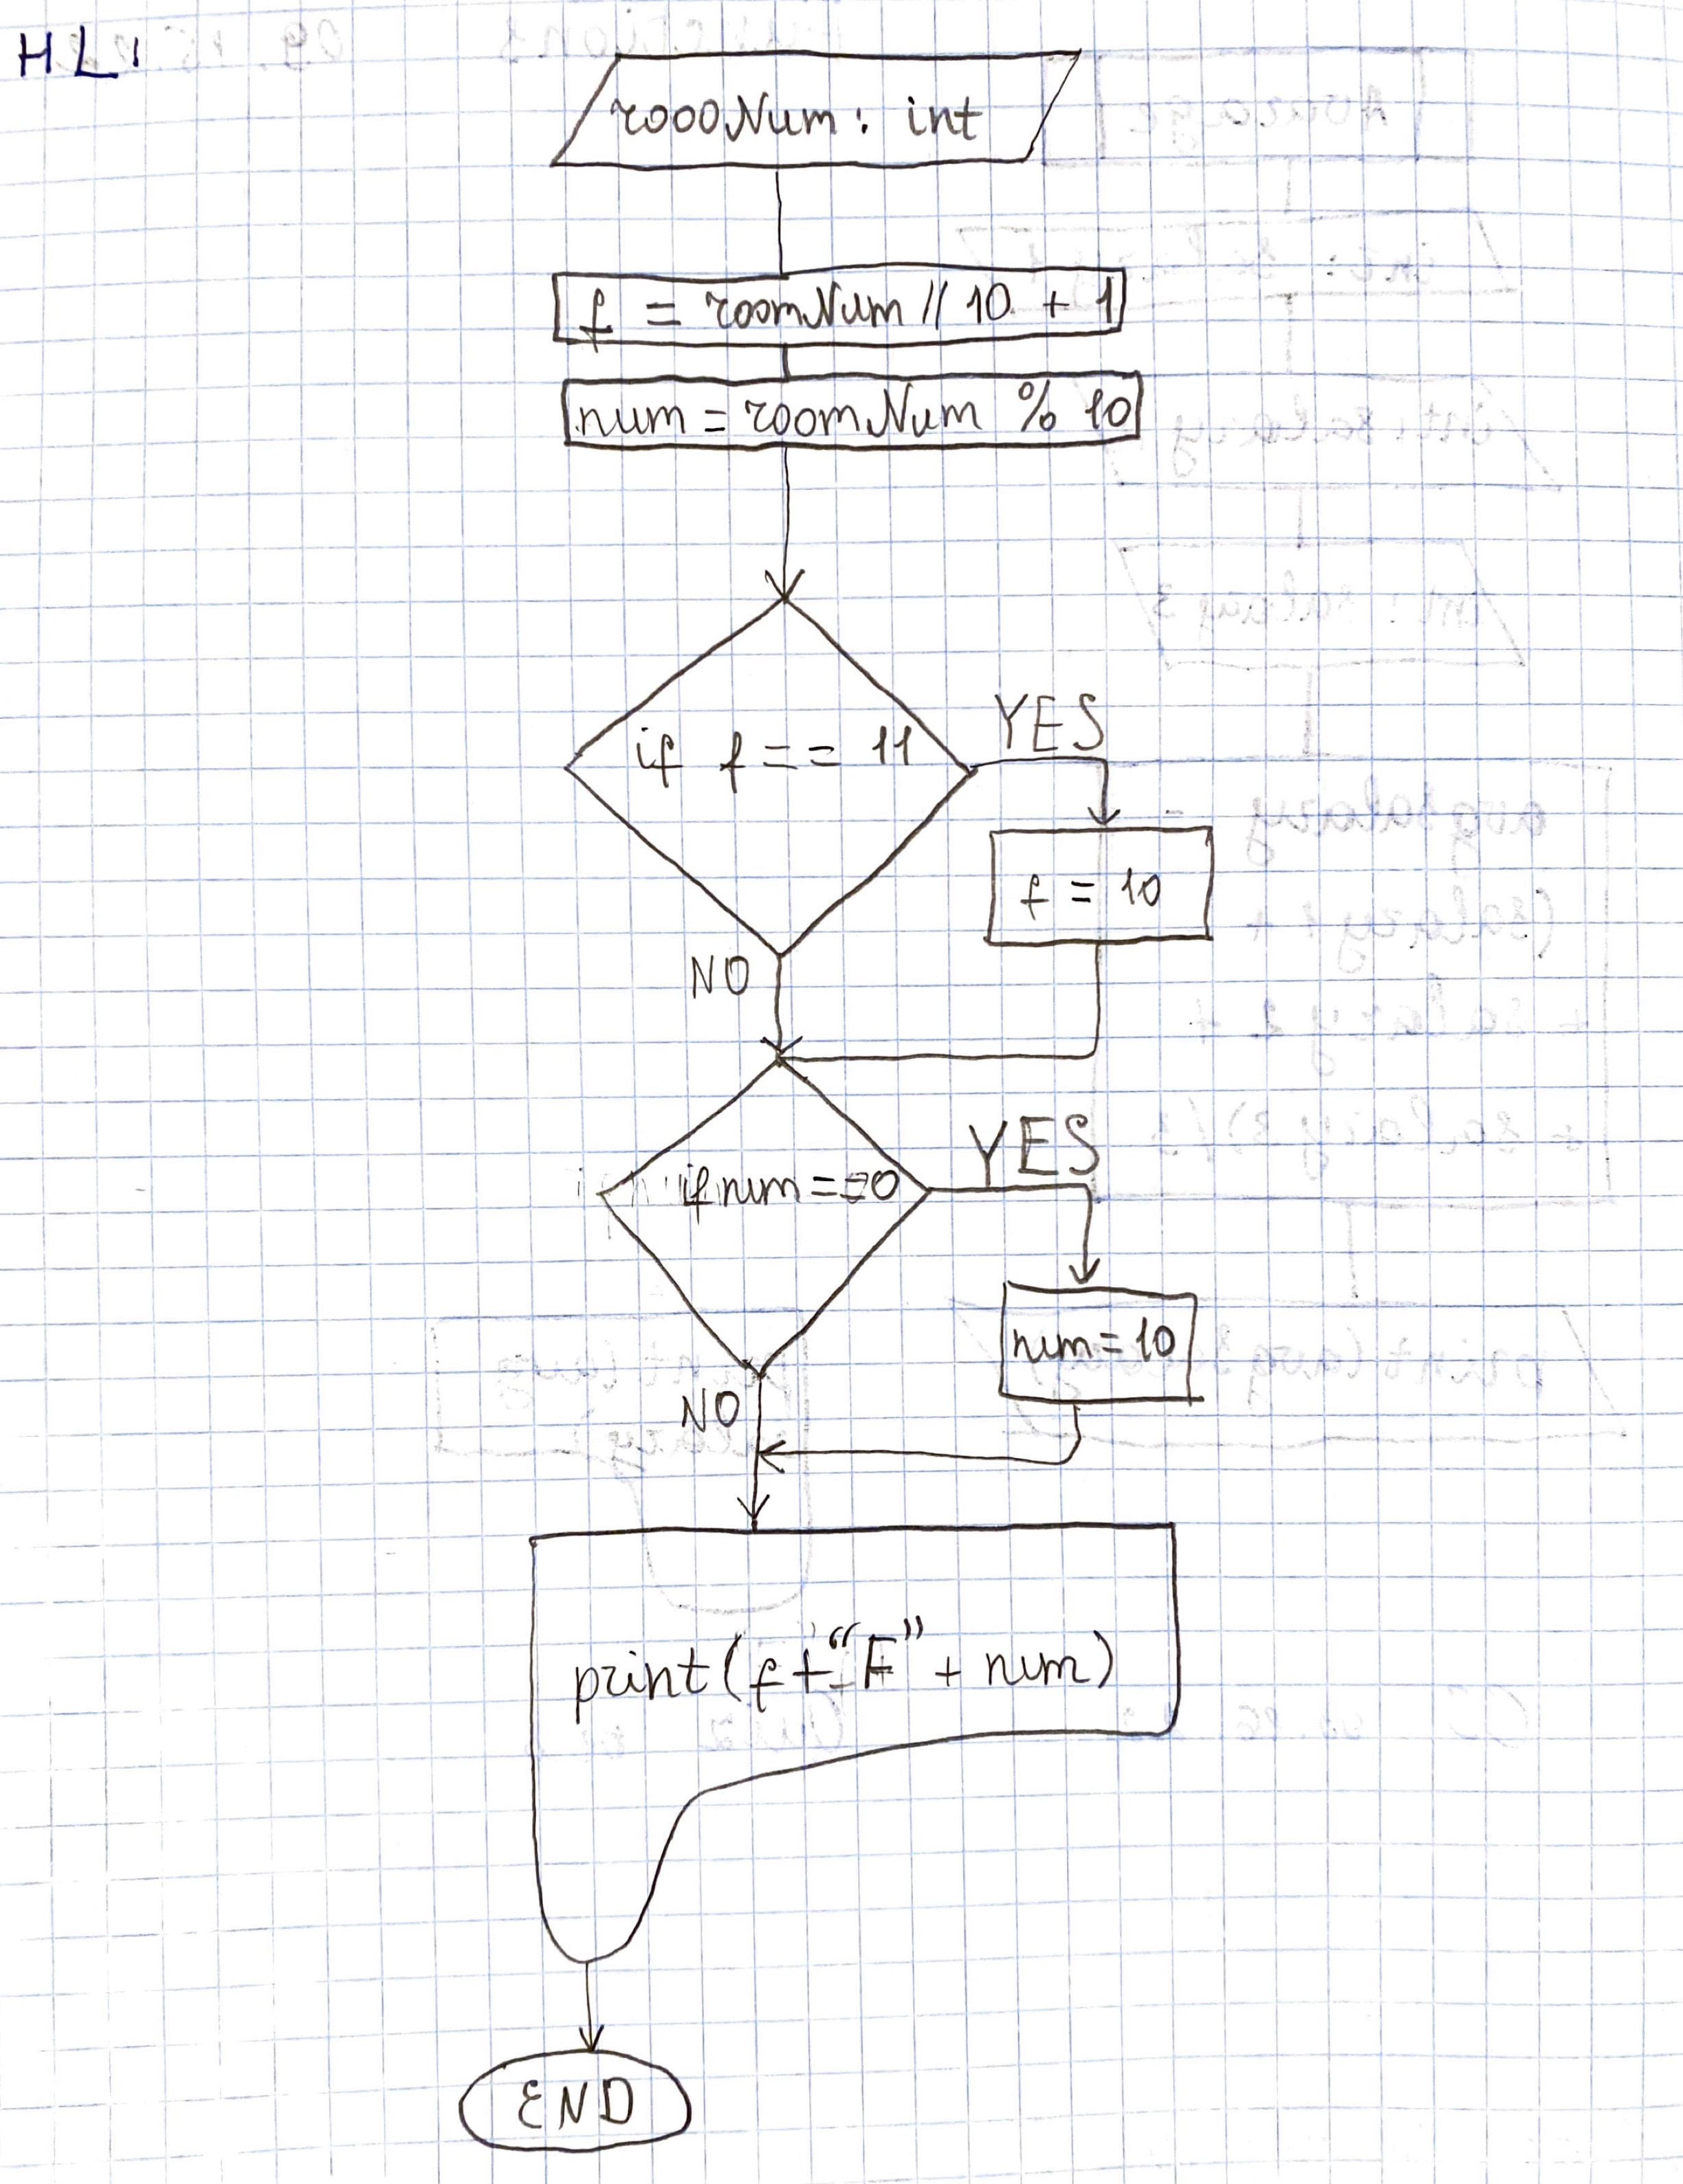 HL1
roooNum: int
f = roomNum // 10 + 1
num = roomNum % 10
if f == 11
YES
f = 10
NO
if num == 0
YES
num = 10
NO
print(f + "F" + num)
END